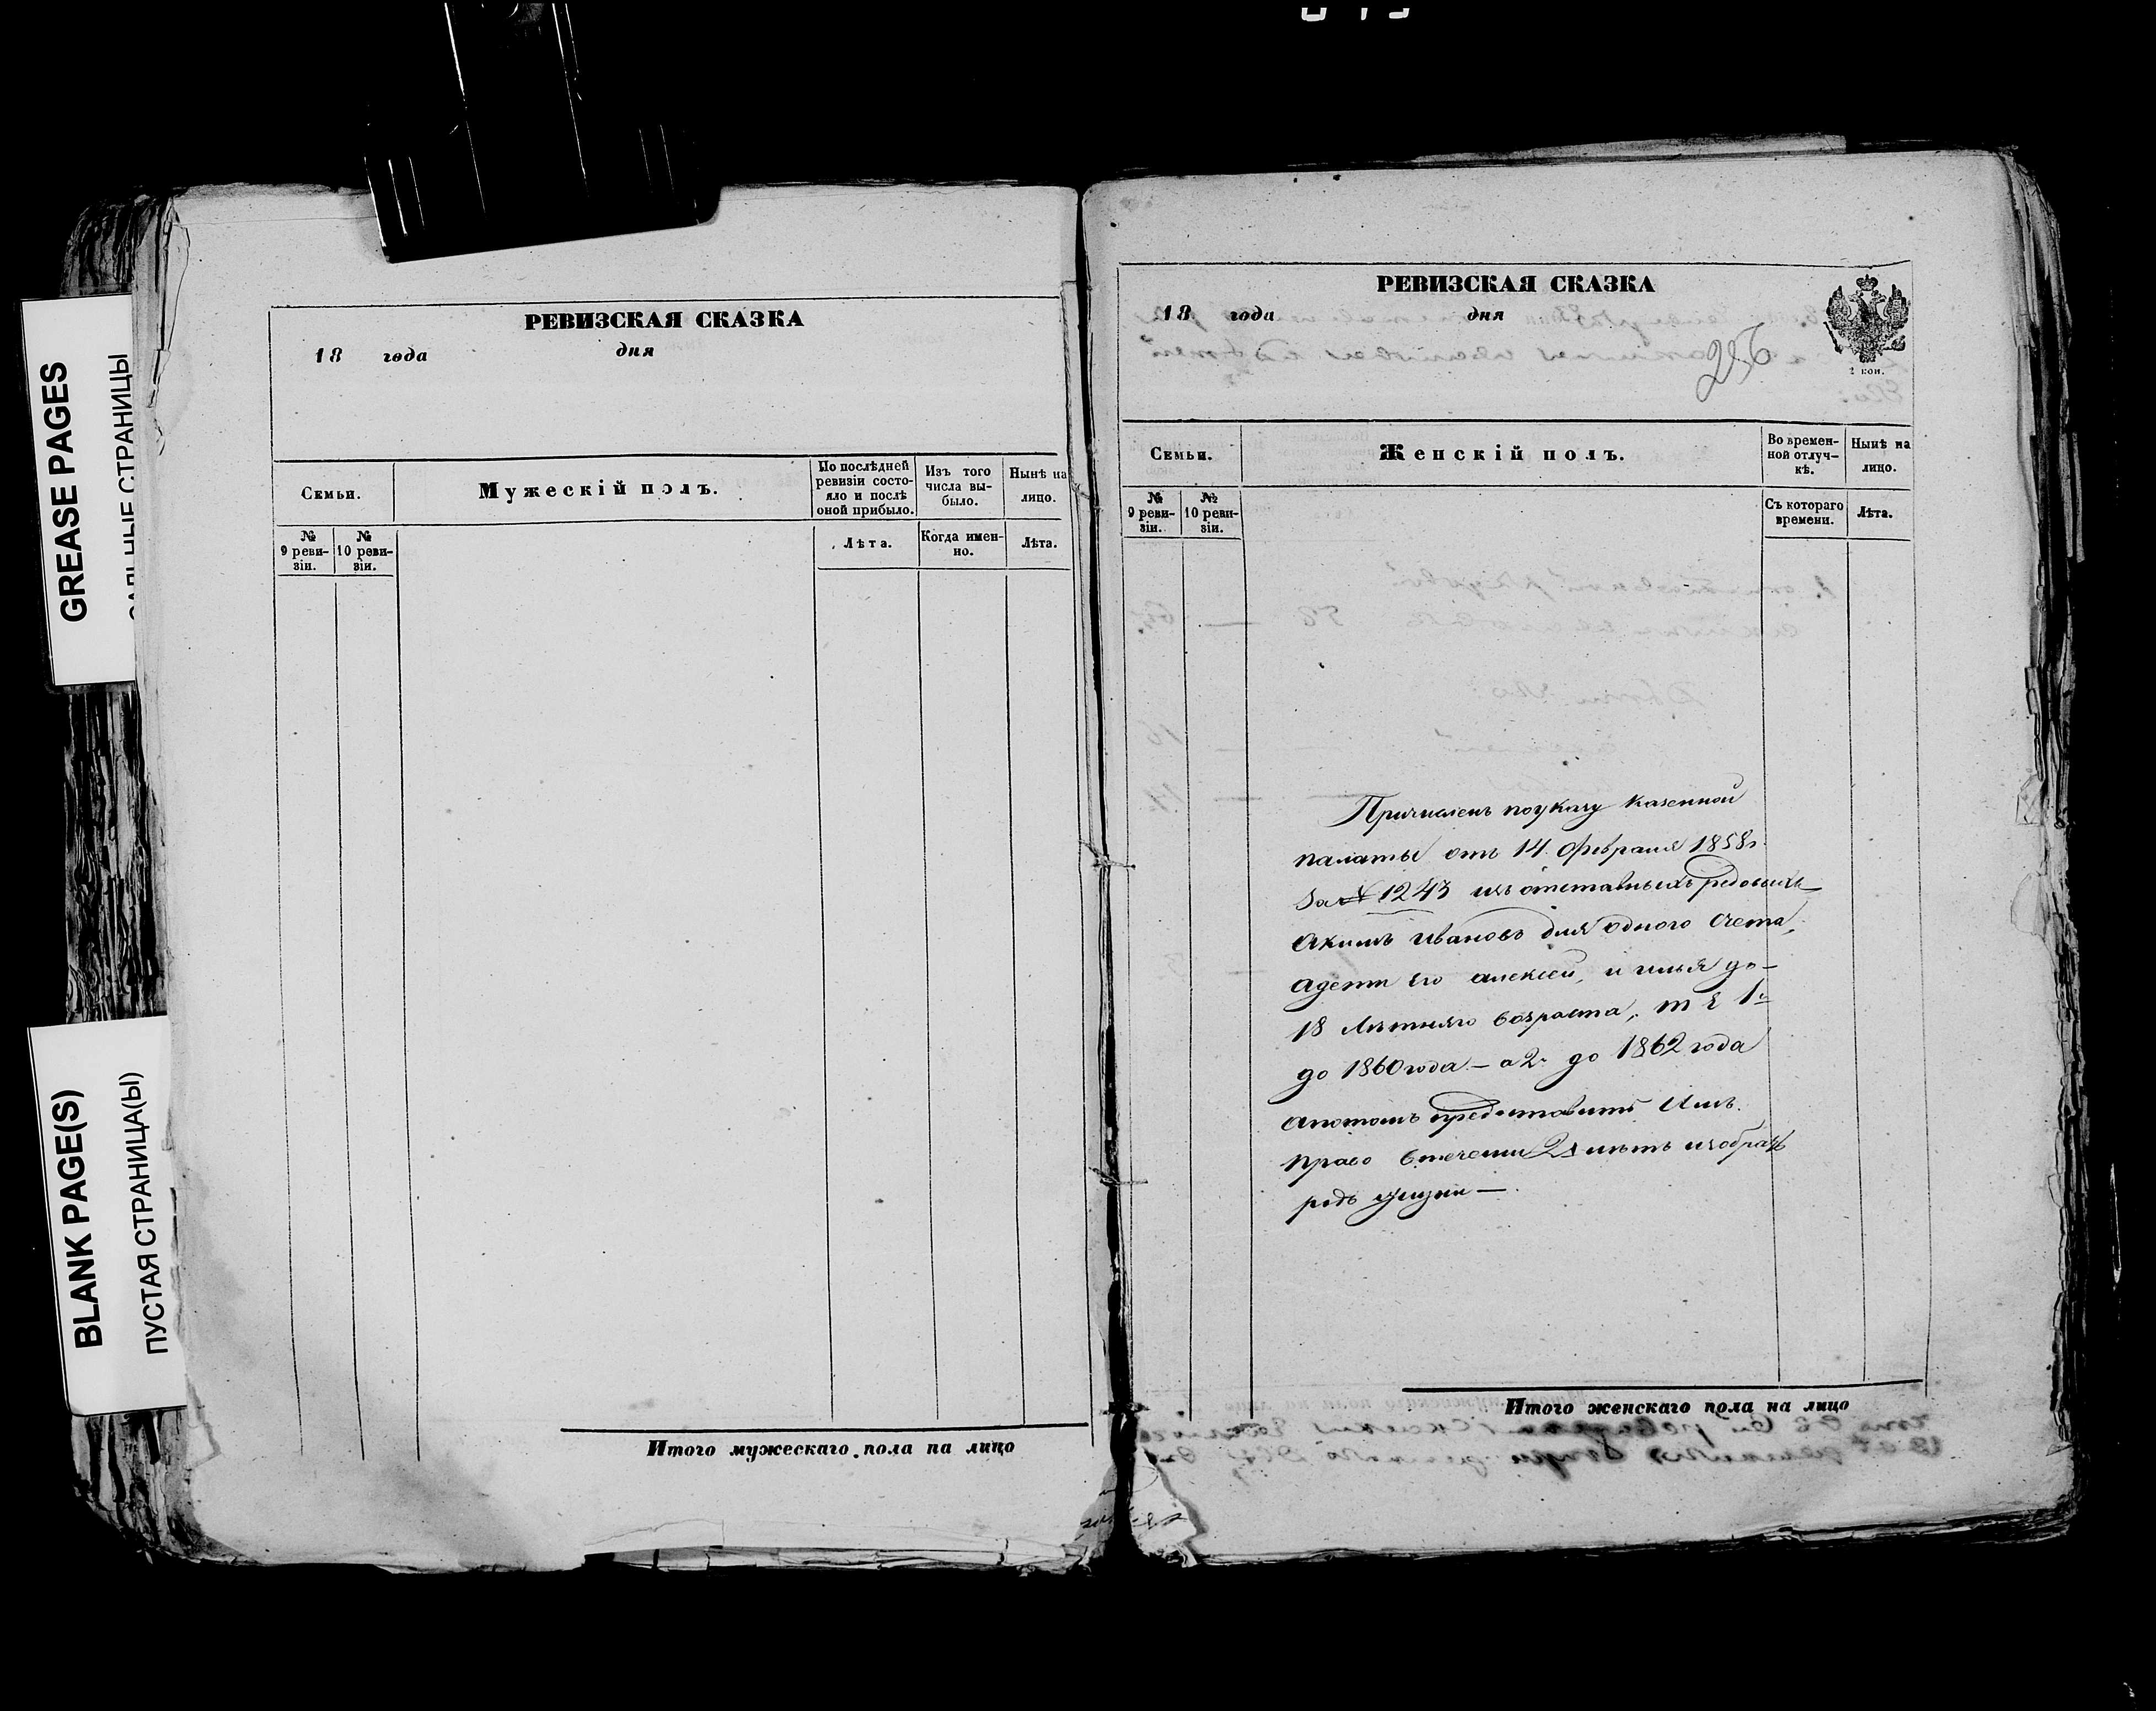 GREASE PAGES
BLANK PAGE(S)
ПУСТАЯ СТРАНИЦА(Ы)
РЕВИЗСКАЯ СКАЗКА
18 года дня
Семьи.
Мужескій полъ.
По послѣдней ревизіи состояло и послѣ оной прибыло.
Изъ того числа выбыло.
Нынѣ на лицо.
№ 9 ревизіи.
№ 10 ревизіи.
Лѣта.
Когда именно.
Лѣта.
Итого мужескаго пола на лицо
РЕВИЗСКАЯ СКАЗКА
18 года дня
256
2 коп.
Семьи.
Женскій полъ.
Во временной отлучкѣ.
Нынѣ на лицо.
№ 9 ревизіи.
№ 10 ревизіи.
Съ котораго времени.
Лѣта.
Причисленъ по указу Казенной
палаты отъ 14 февраля 1858г.
За № 1243 изъ отставныхъ редовыхъ
Акимъ Ивановъ для одного Счета,
а дети Его алексей, и илья до-
18 Летняго возраста, т Е 1й
до 1860 года — а 2й до 1862 года
а потомъ предоставить Имъ
право втечении летъ избрать
родъ жизни —.
Итого женскаго пола на лицо